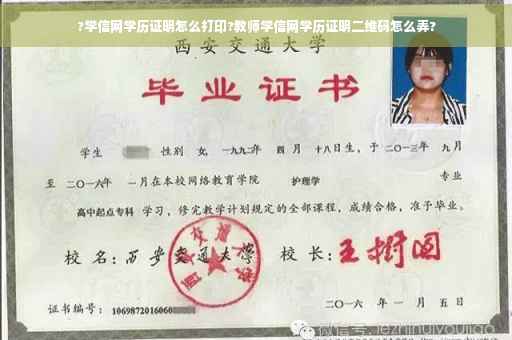 ?学信网学历证明怎么打印?教师学信网学历证明二维码怎么弄?
西安交通大学
毕业证书
学生 性别 女, 一九九二年 四月 十八日生, 于二〇一三年 九月
至 二〇一六年 一月在本校网络教育学院 护理学 专业
高中起点专科 学习, 修完教学计划规定的全部课程, 成绩合格, 准予毕业。
校 名: 西安交通大学 校 长: 王树国
证书编号: 1069872016060
二〇一六 年 一 月 五 日
微信号: jezhinuiyoujiao